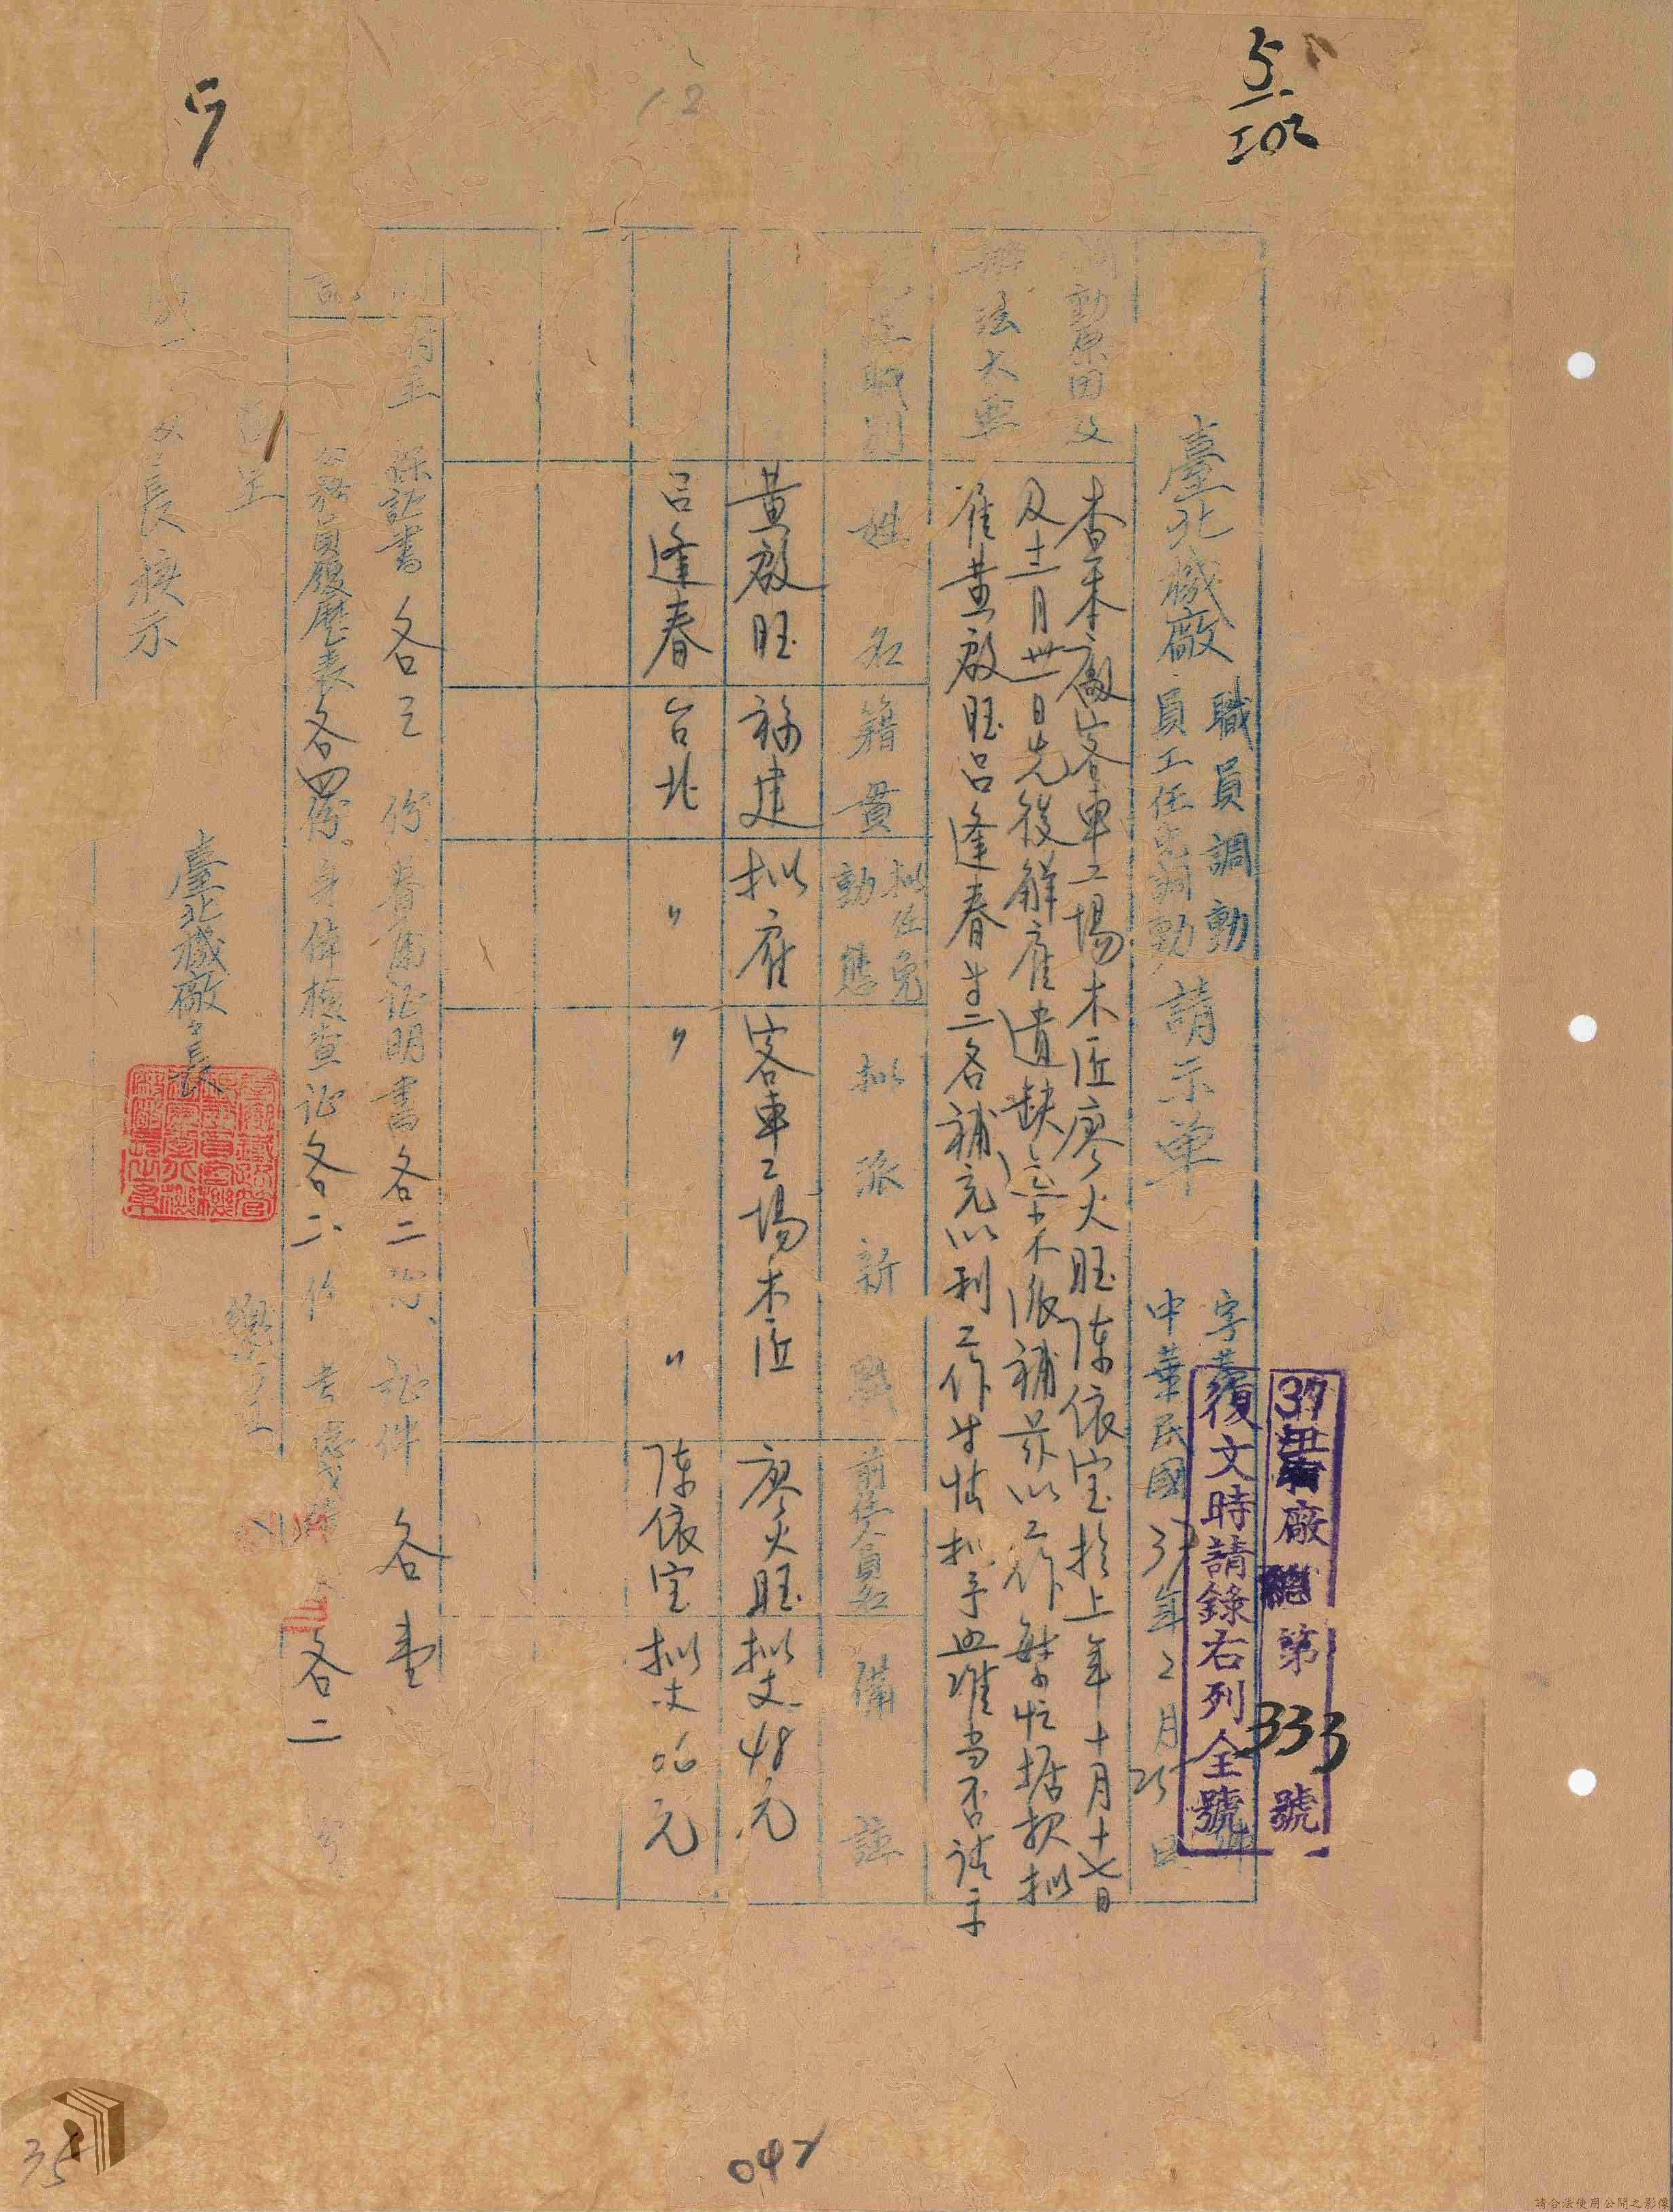 5/202
臺北機廠 職員調動 員工任免調動 請示单
字第
中華民國37年2月25日
37
廠總第333號
復文時請錄右列全號
調動原因及
辦法大要
查本廠客車工場木匠廖火旺陳依宝於上年十月十七日
及十二月卅一日先後解雇遺缺迄未派補茲以工作繁忙据報拟
雇黄啟旺呂逢春等二名補充以利工作等情拟予照准当否請示
職別
姓名
籍貫
拟任免動態
拟派新職
前任人員名
備註
黄啟旺
福建
拟雇
客車工場木匠
廖火旺
拟支48元
呂逢春
台北
〃
〃
〃
陳依宝
拟支06元
保証書各三份
証明書各二份
証件各壹
公務員履歷表各四份
身体檢查証各二份
各二
呈
長核示
臺北機廠廠長
047
35
請合法使用公開之影像